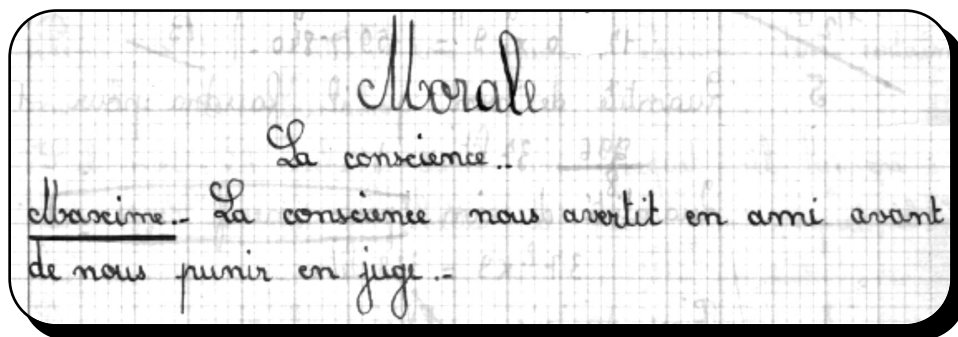 Morale
La conscience.-
Maxime.- La conscience nous avertit en ami avant
de nous punir en juge.-